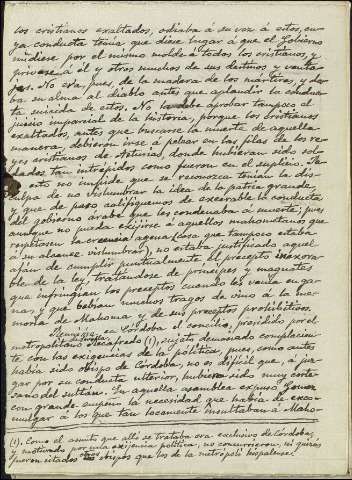 los cristianos exaltados, odiaba á su vez á estos, cu-
ya conducta temia que diese lugar á que el Gobierno
midiese por el mismo molde á todos los cristianos, y
privase á él y otros muchos de sus destinos y venta-
jas. No era, pues, de la madera de los mártires, y da-
ba su alma al diablo antes que aplaudir la conduc-
ta suicida de estos. No la debe aprobar tampoco el
juicio imparcial de la historia, porque los cristianos
exaltados, antes que buscarse la muerte de aquella
manera, debieron irse á pelear en las filas de los re-
yes cristianos de Asturias, donde hubieran sido sol-
dados tan intrépidos como fueron en el suplicio. Pe-
ro esto no impide que se reconozca tenían la dis-
culpa de no vislumbrar la idea de la patria grande,
y que de paso califiquemos de execrable la conducta
del gobierno árabe que les condenaba á muerte; pues
aunque no pueda exijirse á aquellos mahometanos que
respetasen la creencia agena (cosa que tampoco estaba
á su alcance vislumbrar), no estaba justificado aquel
afan de cumplir puntualmente el precepto inexora-
ble de la ley, tratándose de príncipes y magnates
que infringian los preceptos cuando les venía en ga-
na, y que bebían muchos tragos de vino á la me-
moria de Mahoma y de sus preceptos prohibitivos.
Reunióse en Córdoba el concilio, presidido por el
metropolitano de Sevilla Recafredo (1), sujeto demasiado complacien-
te con las exigencias de la política, pues, como antes
habia sido obispo de Córdoba, no es difícil que, á juz-
gar por su conducta ulterior, hubiera sido muy corte-
sano del sultán. En aquella asamblea expuso Gomez
con grande empeño la necesidad que habia de exco-
mulgar á los que tan locamente insultaban á Maho-
(1). Como el asunto que allí se trataba era exclusivo de Córdoba,
y motivado por una exijencia política, no concurrieron, ni quizás
fueron citados otros obispos que los de la metrópoli hispalense.